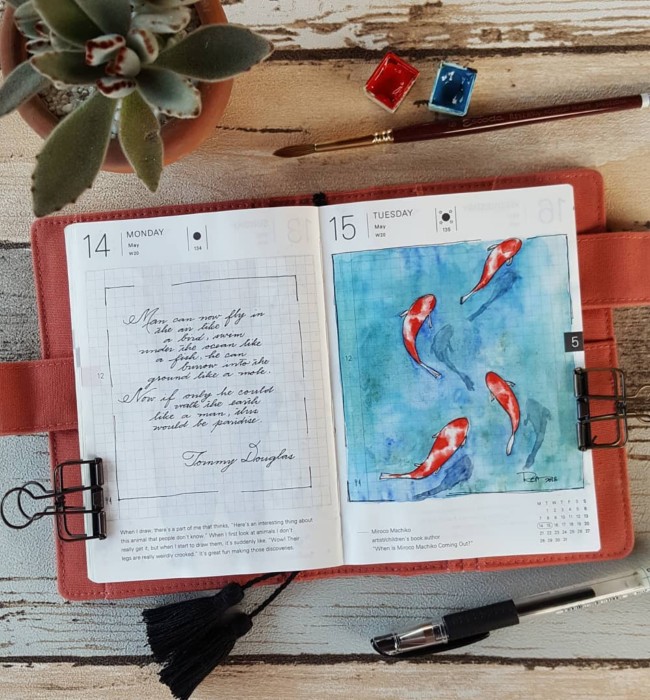 14
MONDAY
May
W20
134
Man can now fly in
the air like
a bird, swim
under the ocean like
a fish, he can
burrow into the
ground like a mole.
Now if only he could
walk the earth
like a man, this
would be paradise.
Tommy Douglas
12
When I draw, there's a part of me that thinks, "Here's an interesting thing about
this animal that people don't know." When I first look at animals I don't
really get it, but when I start to draw them, it's suddenly like, "Wow! Their
legs are really weirdly crooked." It's great fun making those discoveries.
15
TUESDAY
May
W20
135
12
5
Miroco Machiko
artist/children's book author
"When is Miroco Machiko Coming Out?"
M T W T F S S
1 2 3 4 5 6
7 8 9 10 11 12 13
14 15 16 17 18 19 20
21 22 23 24 25 26 27
28 29 30 31